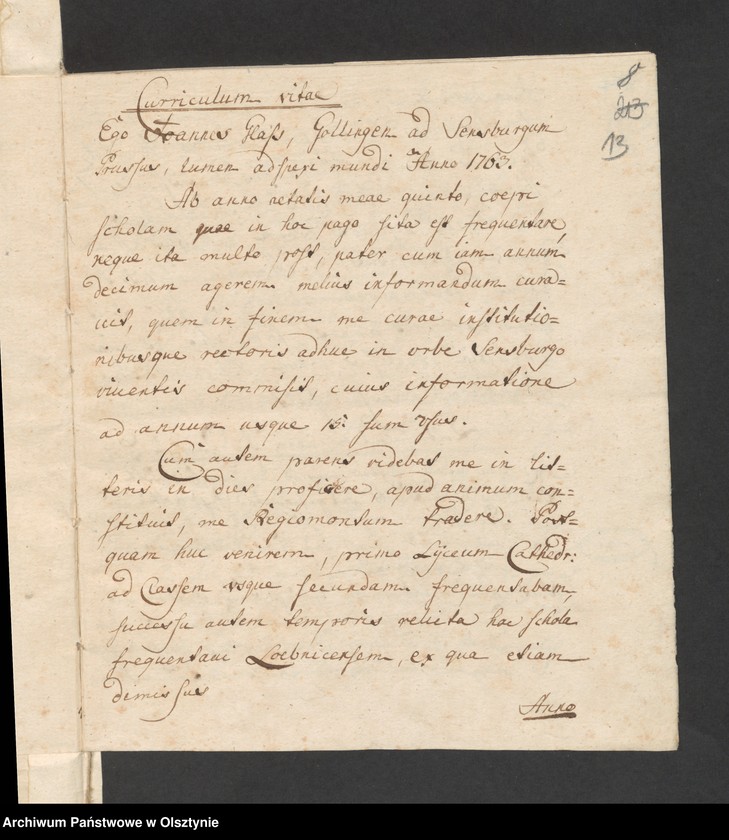 8
213
13
Curriculum vitae
Ego Joannes Glass, Gollingen ad Sensburgum
Prussus, lumen adspexi mundi Anno 1763.
Ab anno aetatis meae quinto, coepi
scholam quae in hoc pago sita est frequentare,
neque ita multo post, pater cum iam annum
decimum agerem melius informandum cura=
uit, quem in finem me curae institutio=
nibusque rectoris adhuc in urbe Sensburgo
viuentis commisit, cuius informatione
ad annum usque 15. sum usus.
Cum autem parens videbat me in lit=
teris in dies proficere, apud animum con=
stituit, me Regiomontum tradere. Post=
quam huc venirem, primo Lyceum Cathedr:
ad Classem usque secundam frequentabam,
successu autem temporis relicta hac schola
frequentaui Loebnicensem, ex qua etiam
dimissus
Anno
Archiwum Państwowe w Olsztynie